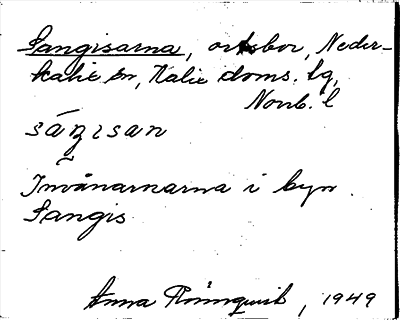 Sangisarna, ortsbor, Neder-
kalix sn, Kalix doms. lg,
Norrb. l
sáŋɪsan
Invånarnarna i byn
Sangis
Anna Rönnqvist, 1949